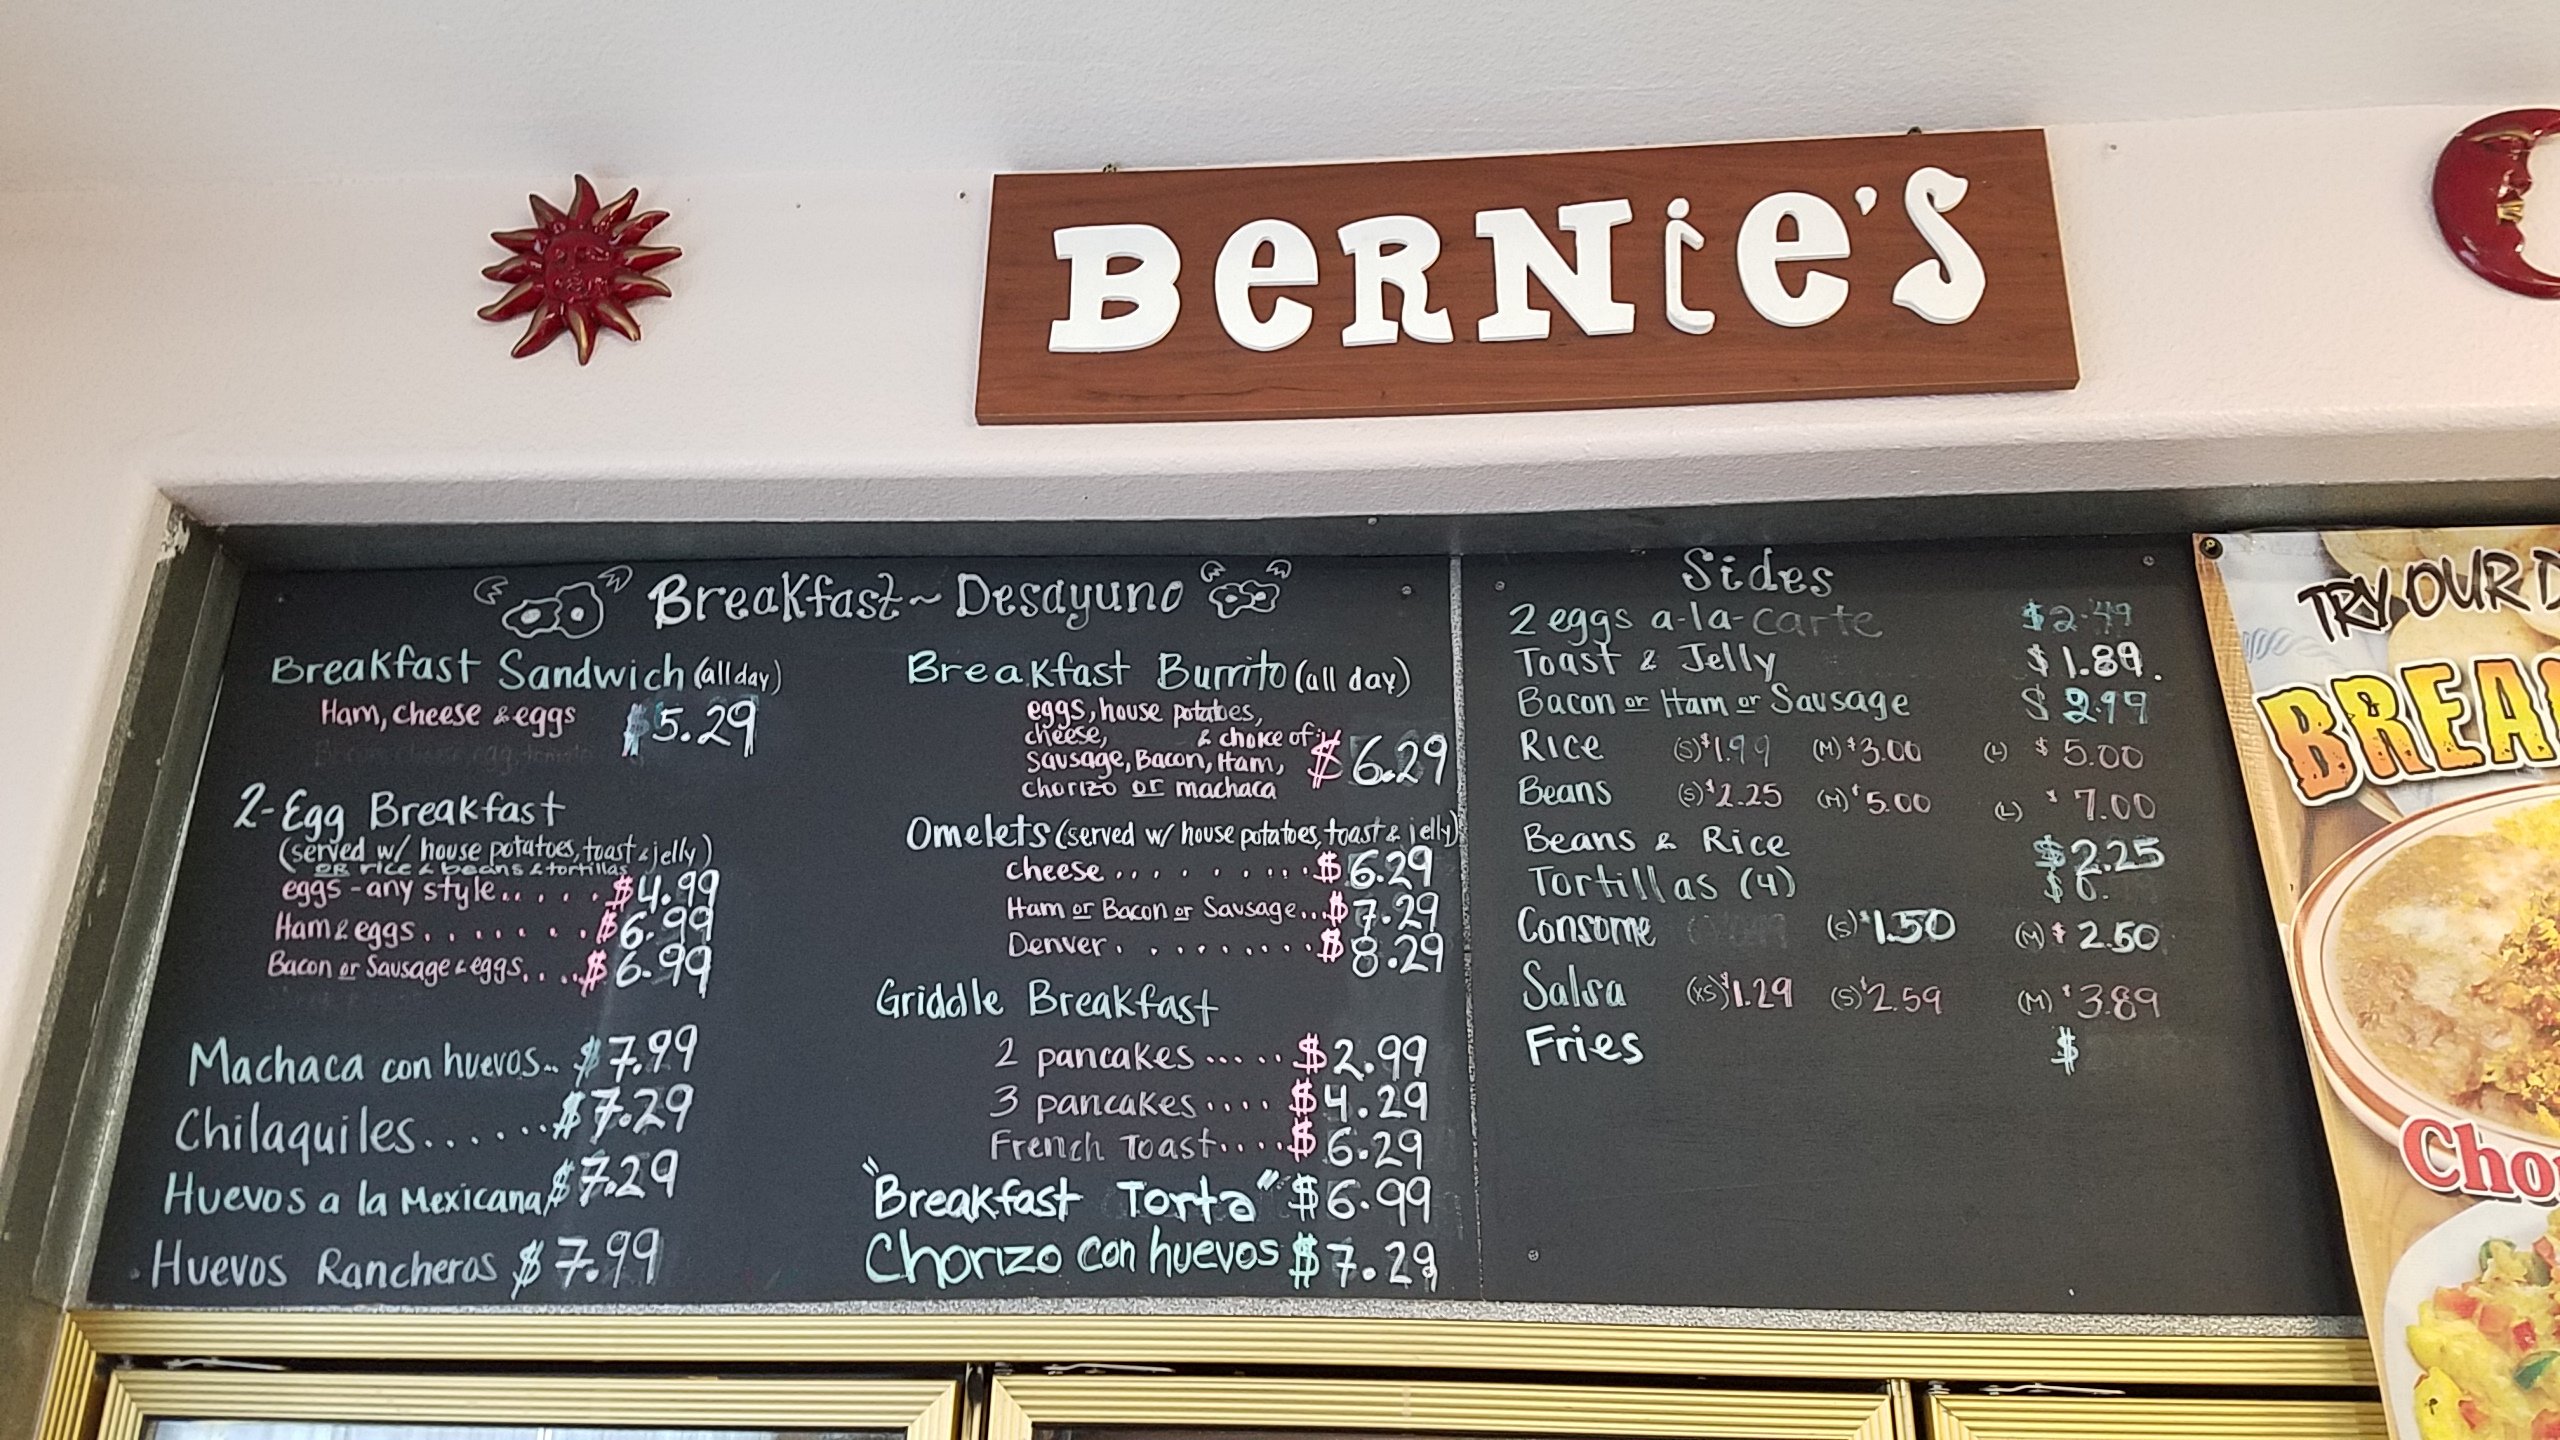 BERNie'S
Breakfast ~ Desayuno
Breakfast Sandwich (all day)
Ham, cheese & eggs $5.29
2-Egg Breakfast
(served w/ house potatoes, toast & jelly)
OR rice & beans & tortillas
eggs - any style..... $4.99
Ham & eggs....... $6.99
Bacon or Sausage & eggs.... $6.99
Machaca con huevos... $7.99
Chilaquiles...... $7.29
Huevos a la Mexicana $7.29
Huevos Rancheros $7.99
Breakfast Burrito (all day)
eggs, house potatoes,
cheese, & choice of:
Sausage, Bacon, Ham, $6.29
chorizo or machaca
Omelets (served w/ house potatoes, toast & jelly)
cheese.......... $6.29
Ham or Bacon or Sausage... $7.29
Denver......... $8.29
Griddle Breakfast
2 pancakes..... $2.99
3 pancakes.... $4.29
French Toast.... $6.29
"Breakfast Torta" $6.99
Chorizo con huevos $7.29
Sides
2 eggs a-la-carte $2.49
Toast & Jelly $1.89.
Bacon or Ham or Sausage $2.99
Rice (S) $1.99 (M) $3.00 (L) $5.00
Beans (S) $2.25 (M) $5.00 (L) $7.00
Beans & Rice $2.25
Tortillas (4)
Consome (S) $1.50 (M) $2.50
Salsa (XS) $1.29 (S) $2.59 (M) $3.89
Fries $
TRY OUR